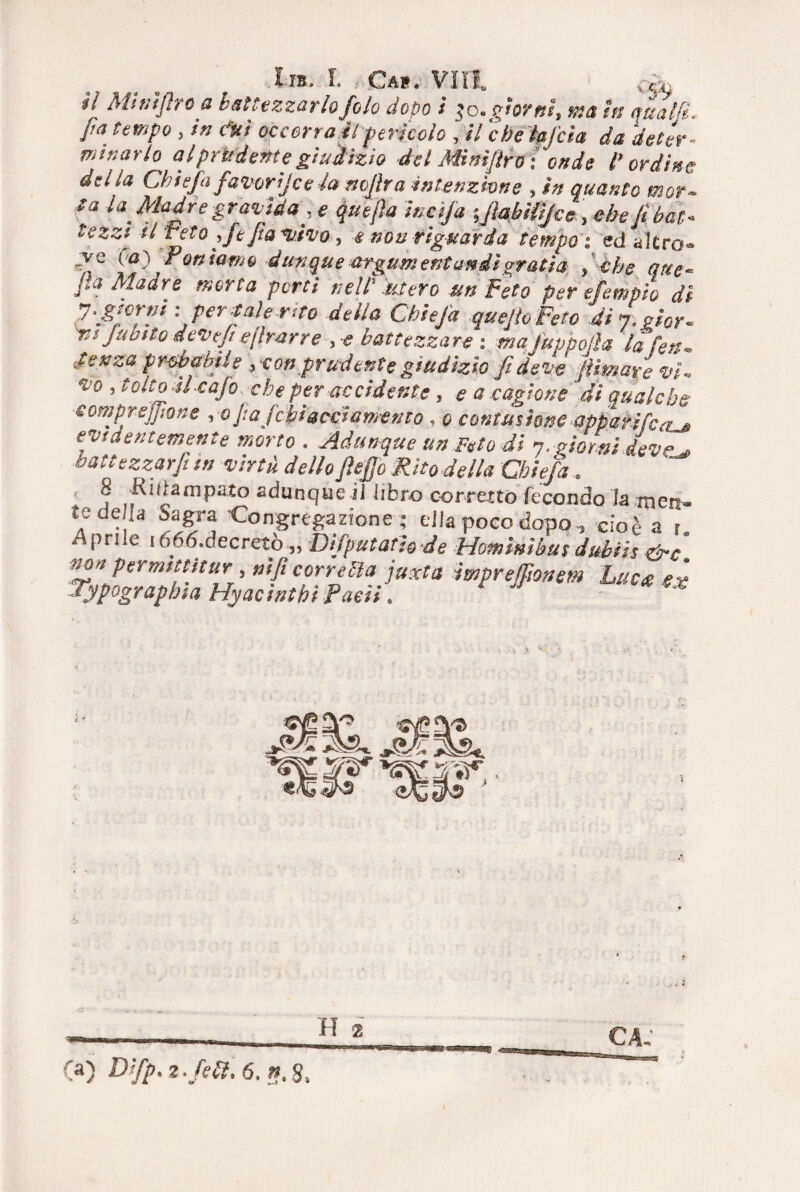 LIB. I. CAP. VIII. 59
il Miniſtro a battezzarlo ſolo dopo i 30. giorni, ma in qualſi-
ſia tempo, in cui occorra il pericolo, il che laſcia da deter-
minarlo al prudente giudizio del Miniſtro: onde l'ordine
della Chieſa favoriſce la noſtra intenzione, in quanto mor-
ta la Madre gravida, e queſta inciſa; ſtabiliſce, che ſi bat-
tezzi il Feto, ſe ſia vivo, e non riguarda tempo: ed altro-
ve (a) Poniamo dunque argumentandi gratia, che que-
ſta Madre morta porti nell' utero un Feto per eſempio di
7. giorni: per tale rito della Chieſa queſto Feto di 7. gior-
ni ſubito deveſi eſtrarre, e battezzare: ma ſuppoſta la ſen-
tenza probabile, con prudente giudizio ſi deve ſtimare vi-
vo, tolto il caſo che per accidente, e a cagione di qualche
compreſſione, o ſia ſchiacciamento, o contusione appariſca
evidentemente morto. Adunque un Feto di 7. giorni deve
battezzarſi in virtù dello ſteſſo Rito della Chieſa.
8 Riſtampato adunque il libro corretto ſecondo la men-
te della Sagra Congregazione; ella poco dopo, cioè a 1.
Aprile 1666. decretò „ Diſputatio de Hominibus dubiis &c.
non permittitur, niſi correcta juxta impreſſionem Lucæ ex
Typographia Hyacinthi Pacii.
H 2 CA-
(a) Diſp. 2. ſect. 6. n. 8.